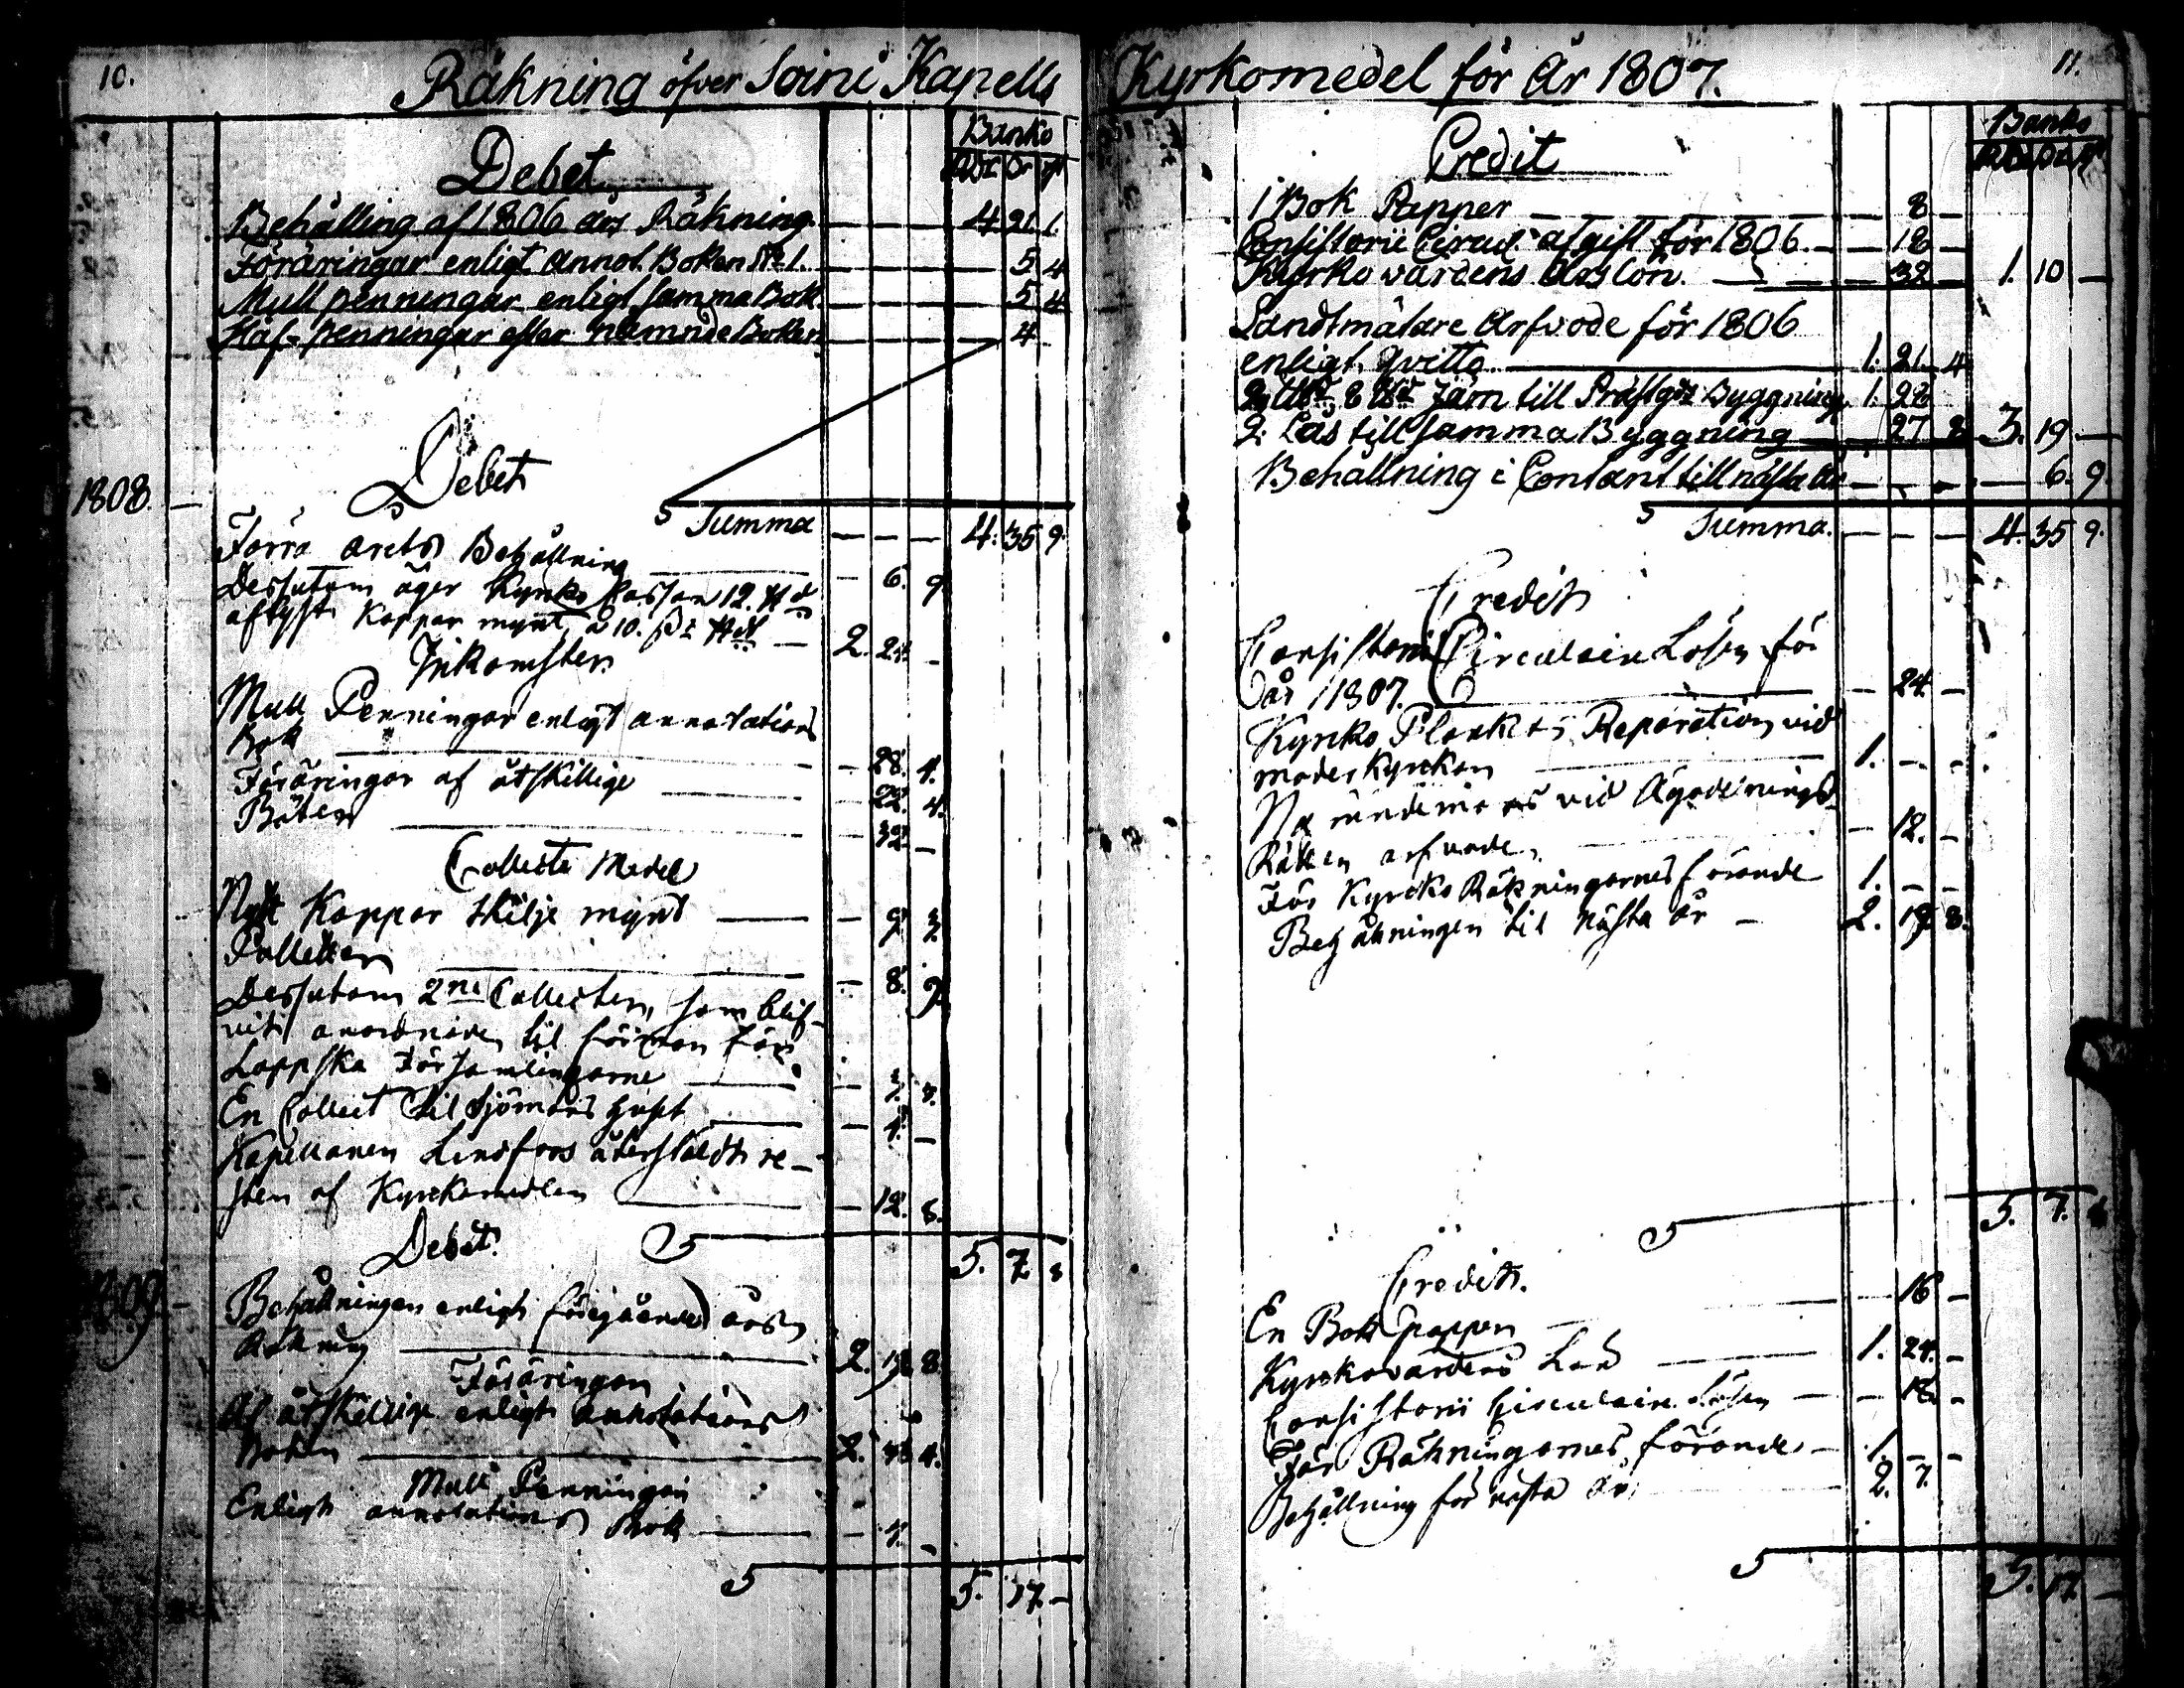 10.
Räkning öfver Soini Kapells
Debet
Banko
RDr ör rst
Behålling af 1806 års Räkning 4. 21. 1.
Föräringar enligt Annot. Boken No 1. 5 4
Mull penningar enligt samma Bok 5 4
Håf-penningar efter nämnde Boken 4
Summa 4. 35 9.
1808.
Debet
Förra årets Behållning 6. 9.
Dessutom äger Kyrko Cassan 12.
aflyst Koppar mynt, à 10. 2. 24. -
Inkomster
Mull Penningar enligt annotations
Bok 28. 4.
Föräringar af åtskillige 22. 4.
Böter 32. -
Collecte Medel
Nytt Koppar skilje mynt
Polletter 8.
Dessutom 2ne Collecter, som blif-
vit anordnade til förmon för
Lappska Församlingarne
En Collect til Sjömans huset 4. -
Kapellanen Lindfors återstäldt re-
sten af Kyrckomedlen 12. 8.
5. 7. 8
1809.
Debet.
Behållningen enligt föregående års
Räkning 2. 8.
Föräringar
Af åtskillige enligt annotations
Boken 2. 4.
Mull Penningar
Enligt annotations Bok 4. -
5. 17. -
11.
Kyrkomedel för År 1807.
Credit
Banko
1 Bok Papper 8 -
Consistorii Circul. afgift för 1806. 18 -
Kyrko värdens års lön. 32 1. 10 -
Landtmätare Arfvode för 1806
enligt qvitto 1. 21. 4
Järn till Prästgårds Byggning 1. 2
2. Lås till samma Byggning 27 8 3. 19 -
Behållning i Contant till nästa År 6. 9.
Summa. 4. 35 9.
Credit
Consistorii Circulaire Lösen för
år 1807. 24. -
Kyrko Plankets Reparation vid
moderkyrkan 1. - -
vid Ägodelnings
Rätten arfvode 12. -
För Kyrcko Räkningarnes förande 1. - -
Behållningen til Nästa år 2. 8.
5. 7.
Credit.
En Bok papper 16 -
Kyrkovärdens Lön 1. 24. -
Consistorii Circulaire Lösen 18. -
För Räkningarnes förande 1. - -
Behållning för nästa år 2. 7.
5. 17. -